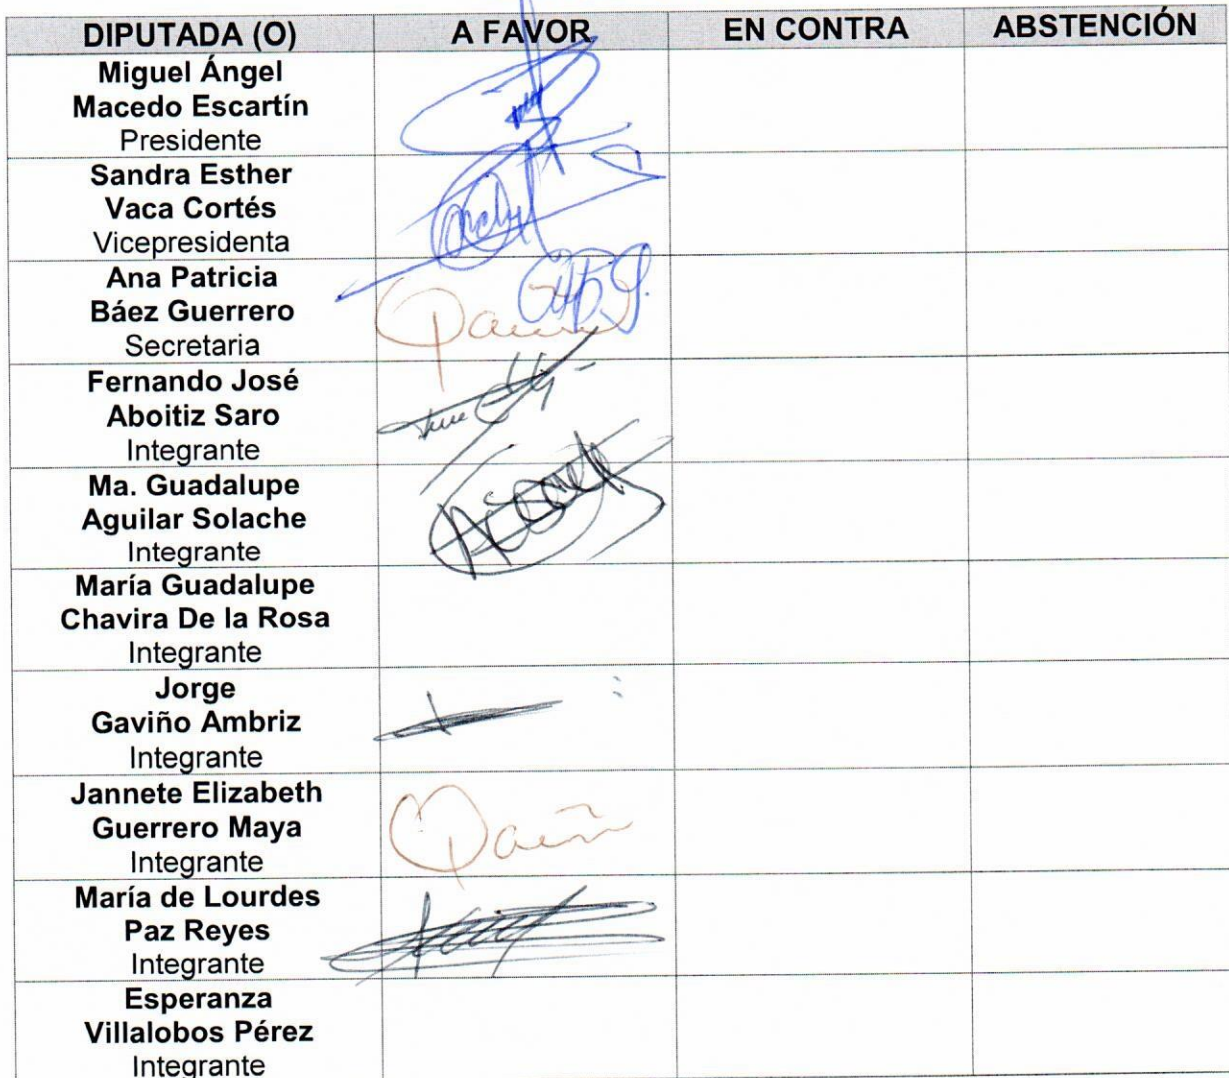 DIPUTADA (O) A FAVOR EN CONTRA ABSTENCIÓN
Miguel Ángel
Macedo Escartín
Presidente
Sandra Esther
Vaca Cortés
Vicepresidenta
Ana Patricia
Báez Guerrero
Secretaria
Fernando José
Aboitiz Saro
Integrante
Ma. Guadalupe
Aguilar Solache
Integrante
María Guadalupe
Chavira De la Rosa
Integrante
Jorge
Gaviño Ambriz
Integrante
Jannete Elizabeth
Guerrero Maya
Integrante
María de Lourdes
Paz Reyes
Integrante
Esperanza
Villalobos Pérez
Integrante